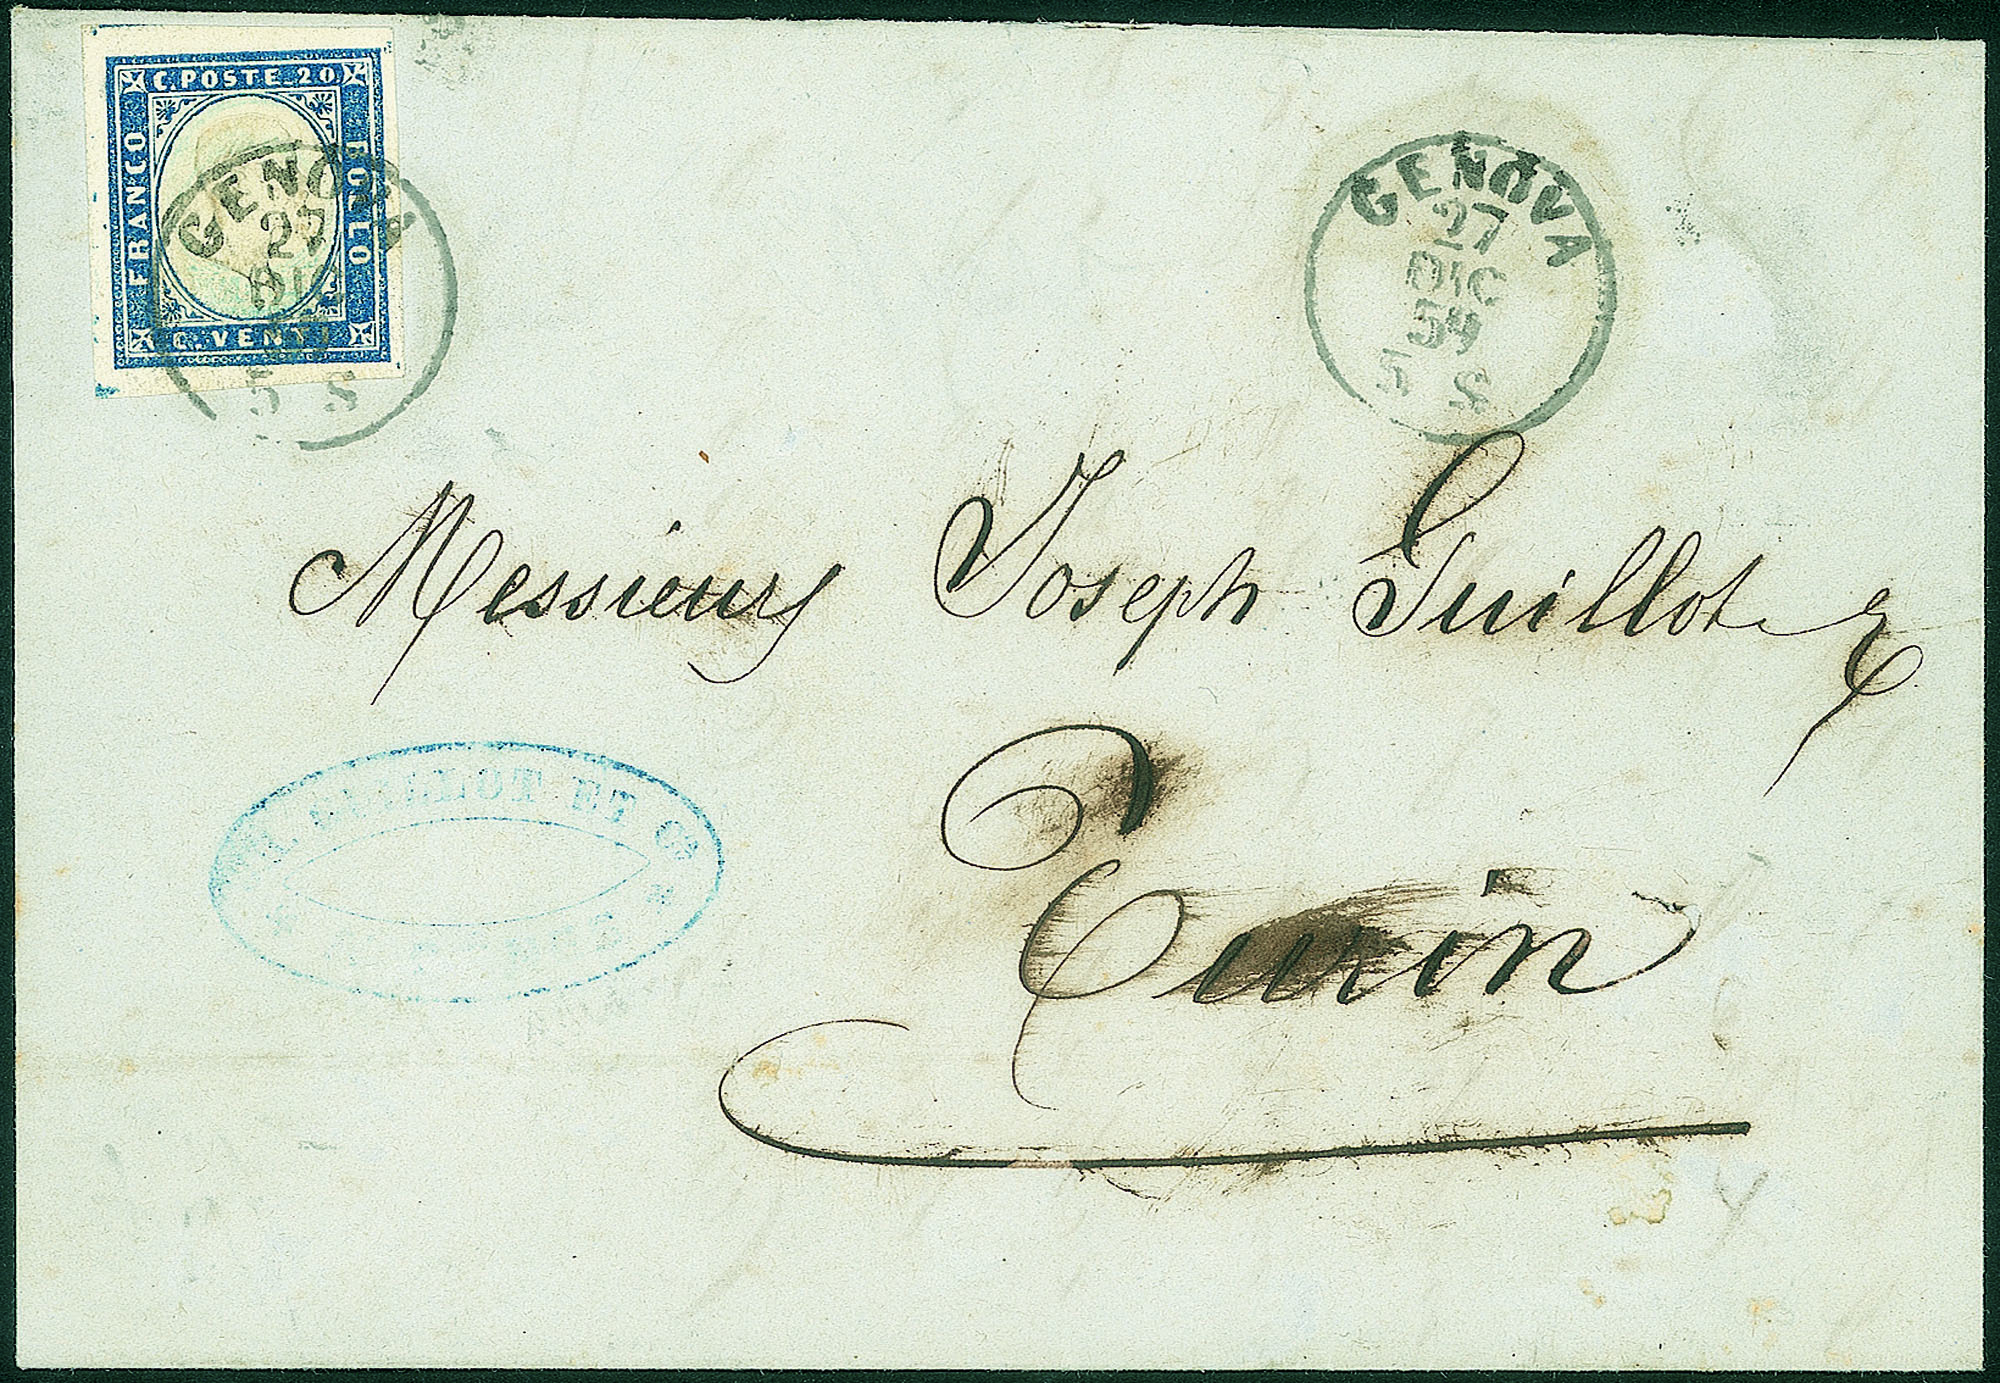 C. POSTE. 20.
FRANCO
BOLLO
C. VENTI
GENOVA
27
DIC
5 S
GENOVA
27
DIC
59
5 S
Messieurs Joseph Guillot &
Turin
GUILLOT ET Cie